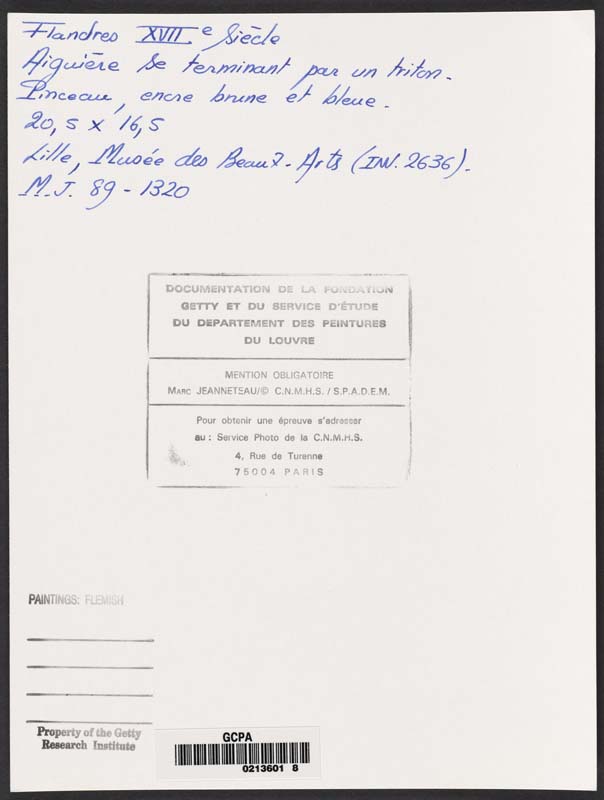 Flandres XVIIe Siècle
Aiguière se terminant par un triton.
Pinceau, encre brune et bleue.
20,5 x 16,5
Lille, Musée des Beaux-Arts (INV. 2636).
M.J. 89-1320
DOCUMENTATION DE LA FONDATION
GETTY ET DU SERVICE D'ÉTUDE
DU DEPARTEMENT DES PEINTURES
DU LOUVRE
MENTION OBLIGATOIRE
MARC JEANNETEAU/© C.N.M.H.S. / S.P.A.D.E.M.
Pour obtenir une épreuve s'adresser
au : Service Photo de la C.N.M.H.S.
4, Rue de Turenne
75004 PARIS
PAINTINGS: FLEMISH
Property of the Getty
Research Institute
GCPA
0213601 8